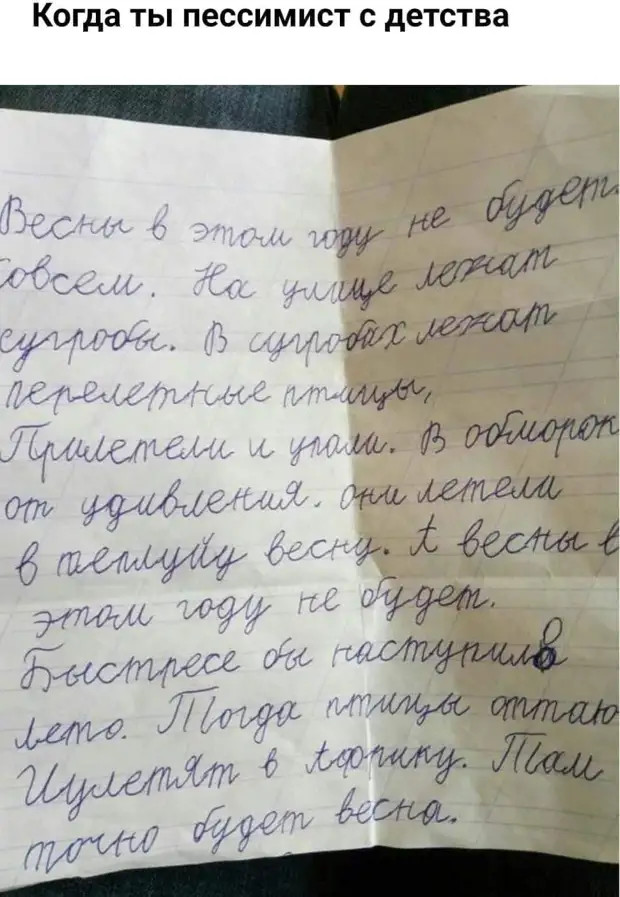 Когда ты пессимист с детства
Весны в этом году не будет.
Совсем. На улице лежат
сугробы. В сугробах лежат
перелетные птицы,
Прилетели и упали. В обморок
от удивления. они летели
в теплуйу весну. А весны в
этом году не будет.
Быстресе бы наступило
лето. Тогда птицы оттаю
Иулетят в Африку. Там
точно будет весна.